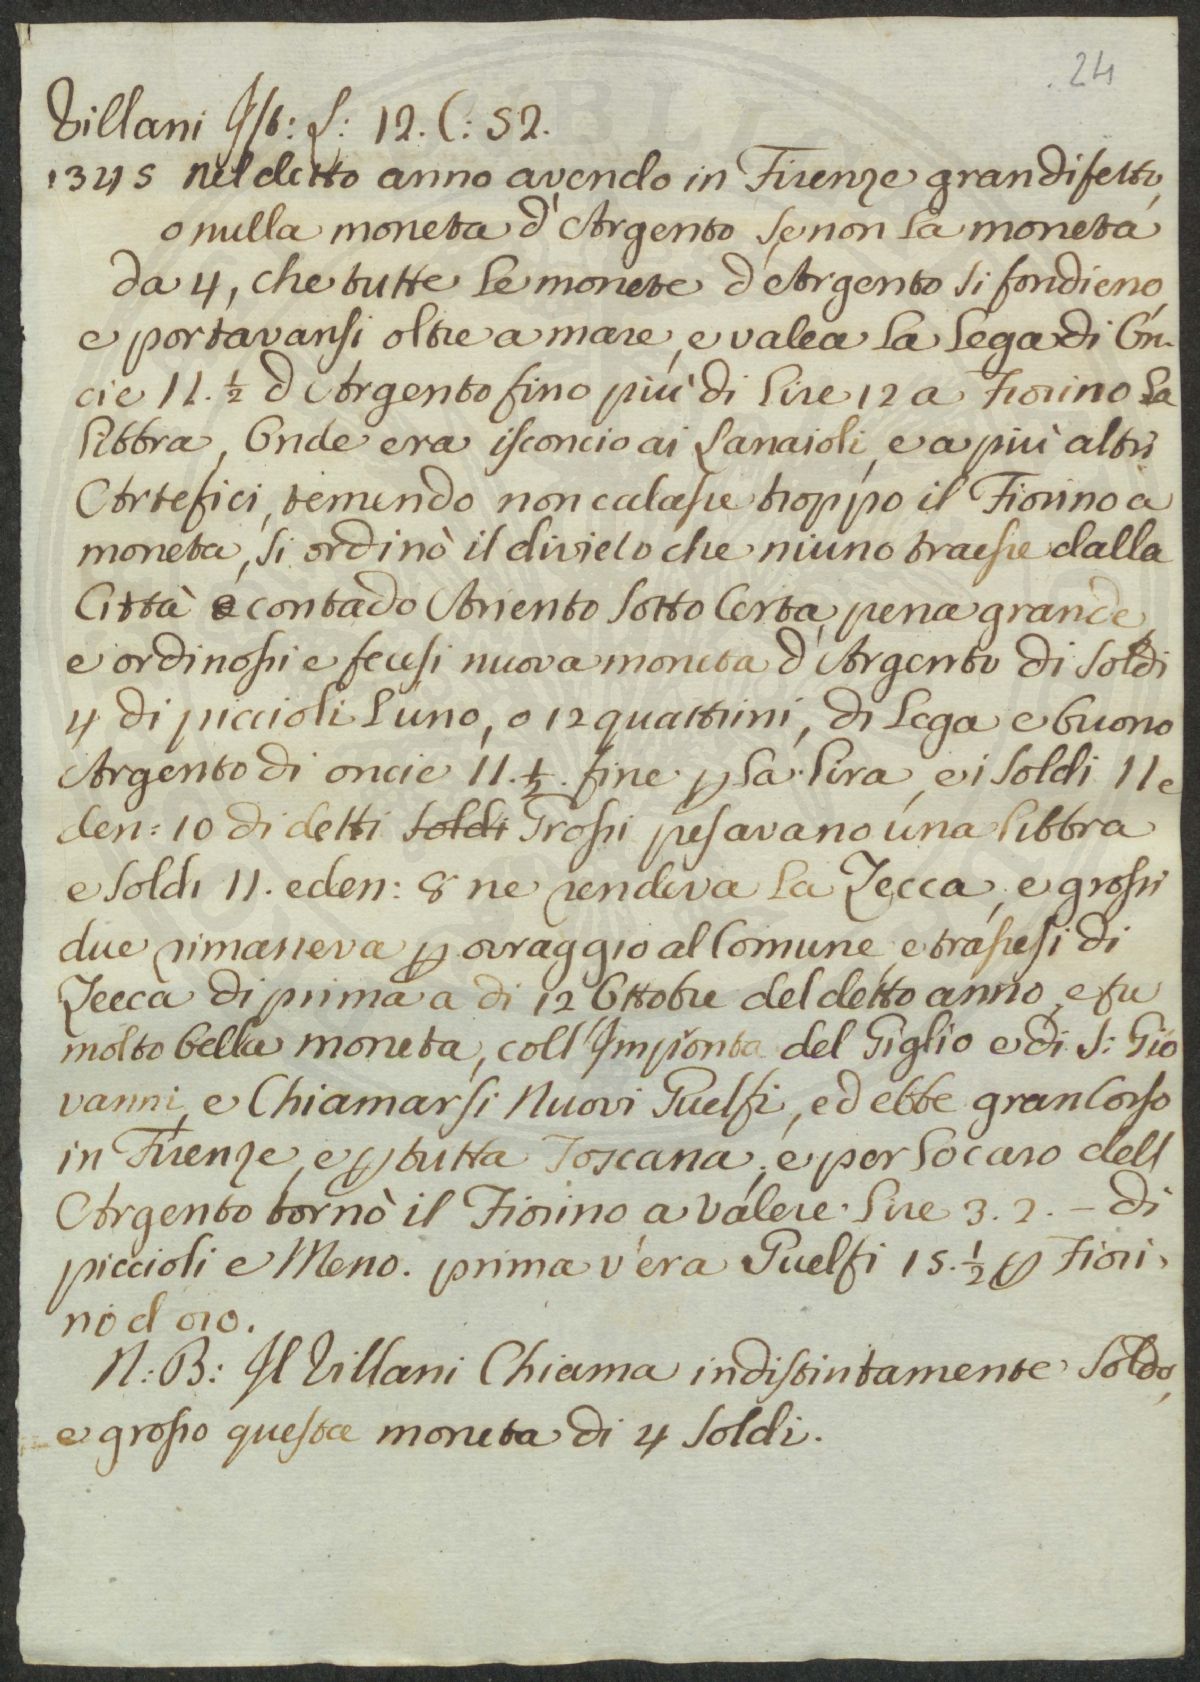 24
Villani Ist: L: 12. C: 52.
1345 nel detto anno avendo in Firenze gran difetto,
o nulla moneta d'Argento se non la moneta
da 4, che tutte le monete d'Argento si fondieno,
e portavansi oltre a mare, e valea la lega di On-
cie 11. ½ d'Argento fino più di lire 12 a Fiorino la
libbra, Onde era isconcio ai Lanaioli, e a più altri
Artefici, temendo non calasse troppo il Fiorino a
moneta, si ordinò il divieto che niuno traesse dalla
Città e contado Ariento sotto Certa pena grande,
e ordinossi e fecesi nuova moneta d'Argento di Soldi
4 di piccioli l'uno, o 12 quattrini, di Lega e buono
Argento di oncie 11. ½. fine p la lira, e i soldi 11 e
den: 10 di detti soldi Grossi pesavano una libbra
e soldi 11. e den: 8 ne rendeva la Zecca, e grossi
due rimaneva p ovraggio al Comune, e trassesi di
Zecca di prima a dì 12 Ottobre del detto anno, e fu
molto bella moneta, coll'Impronta del Giglio e di S: Gio
vanni, e Chiamarsi Nuovi Guelfi, ed ebbe gran Corso
in Firenze, e p tutta Toscana, e per lo caro dell
Argento tornò il Fiorino a valere lire 3. 2. – di
piccioli e Meno. prima v'era Guelfi 15. ½ p Fiori-
no d'oro.
N: B: Il Villani Chiama indistintamente Soldo,
e grosso questa moneta di 4 soldi.